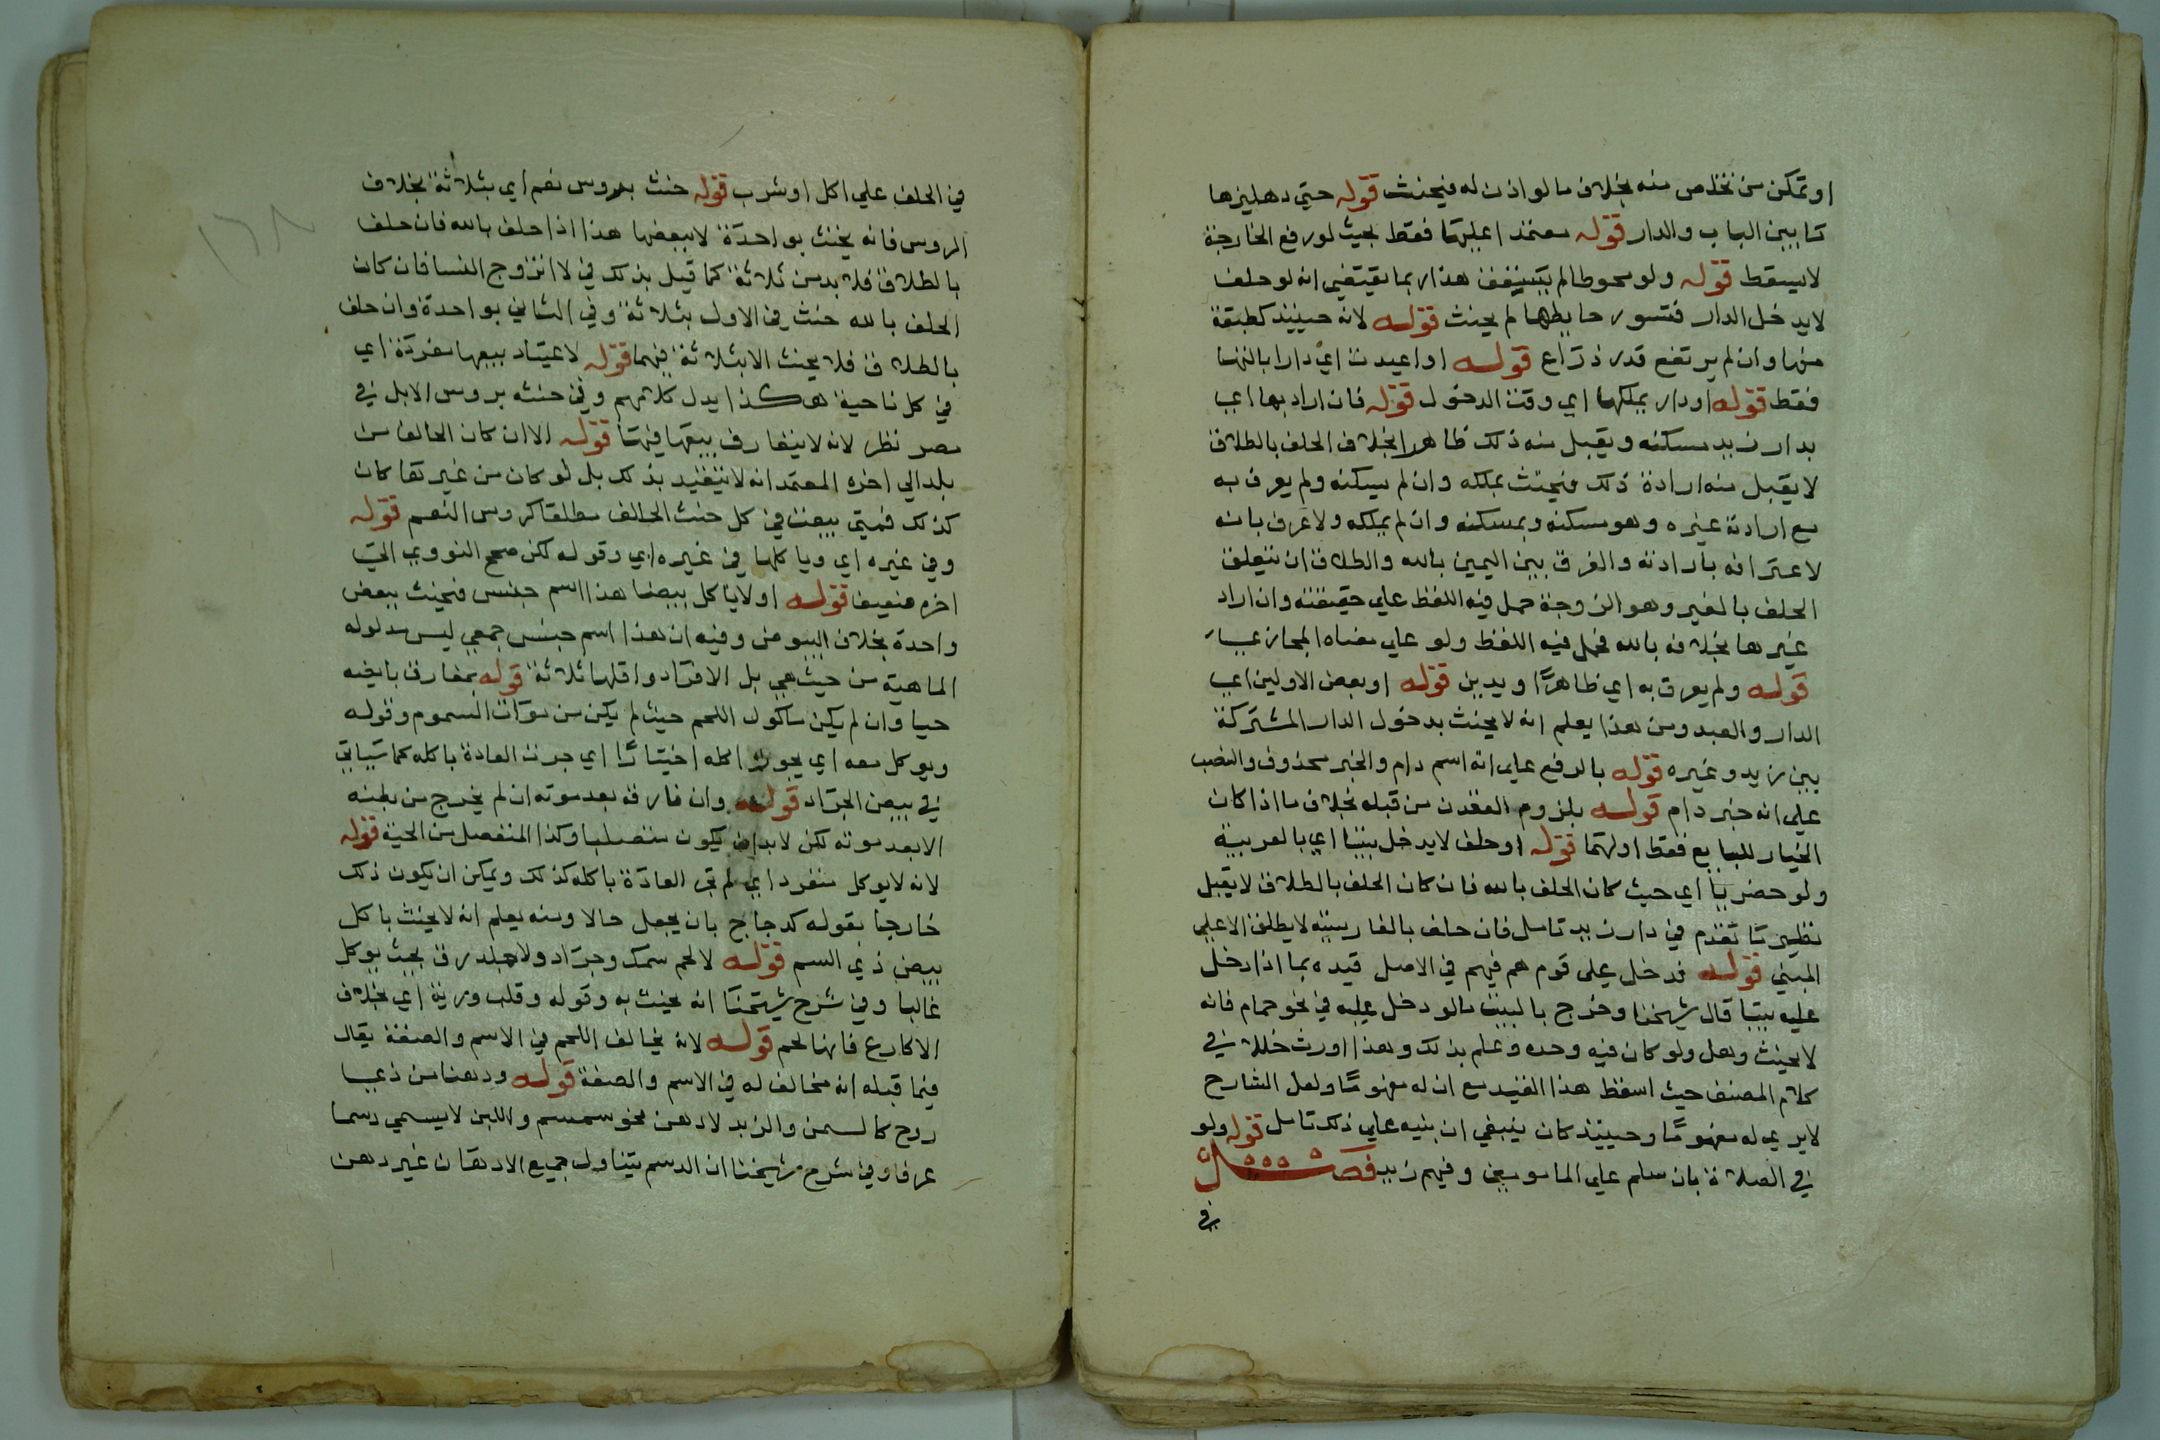 او تمكن من تخلص منه بخلاف ما لو اذن له فيحنث قوله حتي دهليزها
كما بين الباب والدار قوله معتمدا عليها فقط بحيث لو رفع الخارجة
لا يسقط قوله ولو محوطا لم يسقف هذا ربما يقتضي انه لو حلف
لا يدخل الدار فتسور حايطها لم يحنث قوله لانه حينيذ كطبقة
منها وان لم يرتفع قدر ذراع قوله او اعيدت اي دارا بالتها
فقط قوله او دار يملكها اي وقت الدخول قوله فان اراد بها اي
بدار زيد مسكنه ويقبل منه ذلك ظاهرا بخلاف الحلف بالطلاق
لا يقبل منه ارادة ذلك فيحنث بملكه وان لم يسكنه ولم يعرف به
مع ارادة غيره وهو مسكنه وبمسكنه وان لم يملكه ولا عرف بانه
لاعترافه بارادته والفرق بين اليمين بالله والطلاق ان تتعلق
الحلف بالغير وهو الزوجة حمل فيه اللفظ علي حقيقته وان اراد
غيرها بخلافه بالله فحمل فيه اللفظ ولو علي معناه المجازي
قوله ولم يعرف به اي ظاهرا ويدين قوله او بعض الاولين اي
الدار والعبد ومن هذا يعلم انه لا يحنث بدخول الدار المشتركة
بين زيد وغيره قوله بالرفع علي انه اسم دام والخبر محذوف والنصب
علي انه خبر دام قوله بلزوم العقد من قبله بخلاف ما اذا كان
الخيار للبايع فقط او لهما قوله او حلف لا يدخل بيتا اي بالعربية
ولو حضريا اي حيث كان الحلف بالله فان كان الحلف بالطلاق لا يقبل
نظير ما تقدم في دار زيد تامل فان حلف بالفارسيته لا يطلق الا علي
المبني قوله فدخل علي قوم هم فيهم في الاصل قيده بما اذا دخل
عليه بيتا قال شيخنا وخرج بالبيت ما لو دخل عليه في نحو حمام فانه
لا يحنث وهل ولو كان فيه وحده وعلم بذلك وهذا اورث خللا في
كلام المصنف حيث اسقط هذا القيد مع ان له مفهوما ولعل الشارح
لا يري له مفهوما وحينيذ كان ينبغي ان ينبه علي ذلك تامل قوله ولو
في الصلاة بان سلم علي المامومين وفيهم زيد فصل
في
في الحلف علي اكل او شرب قوله حنث بروس نعم اي بثلاثة بخلاف
الروس فانه يحنث بواحدة لا ببعضها هذا اذا حلف بالله فان حلف
بالطلاق فلا بد من ثلاثة كما قيل بذلك في لا اتزوج النسا فان كان
الحلف بالله حنث في الاول بثلاثة وفي الثاني بواحدة وان حلف
بالطلاق فلا يحنث الا بثلاثة فيهما قوله لاعتياد بيعها مفردة اي
في كل ناحية هكذا يدل كلامهم وفي حنثه بروس الابل في
مصر نظر لانه لا يتعارف بيعها فيها قوله الا ان كان الحالف من
بلد الي اخره المعتمد انه لا يتقيد بذلك بل لو كان من غيرها كان
كذلك فمتي بيعت في كل حنث الحالف مطلقا كروس النعم قوله
وفي غيره اي وياكلها في غيره اي وقوله لكن صحح النووي الي
اخره ضعيف قوله او لا ياكل بيضا هذا اسم جنس فحنث ببعض
واحدة بخلاف البيوض وفيه ان هذا اسم جنس جمعي ليس مدلوله
الماهية من حيث هي بل الافراد واقلها ثلاثة قوله بمفارق بايضه
حيا وان لم يكن ماكول اللحم حيث لم يكن من ذوات السموم وقوله
ويوكل معه اي يجوز اكله اختيارا اي جرت العادة باكله كما سياتي
في بيض الجراد قوله وان فارقه بعد موته ان لم يخرج من بطنه
الا بعد موته لكن لا بد ان يكون متصلبا وكذا المنفصل من الحية قوله
لانه لا يوكل منفردا اي لم تجر العادة باكله كذلك ويمكن ان يكون ذلك
خارجا بقوله كدجاج بان يجعل حالا ومنه يعلم انه لا يحنث باكل
بيض ذي السم قوله لا لحم سمك وجراد ولا جلد رق بحيث يوكل
غالبا وفي شرح شيخنا انه يحنث به وقوله وقلب ورية اي بخلاف
الاكارع فانها لحم قوله لانه يخالف اللحم في الاسم والصفة يقال
فيما قبله انه مخالف له في الاسم والصفة قوله ودهنا من ذي
روح كالسمن والزبد لا دهن نحو سمسم واللبن لا يسمي دسما
عرفا وفي شرح شيخنا ان الدسم يتناول جميع الادهان غير دهن
١٦٨